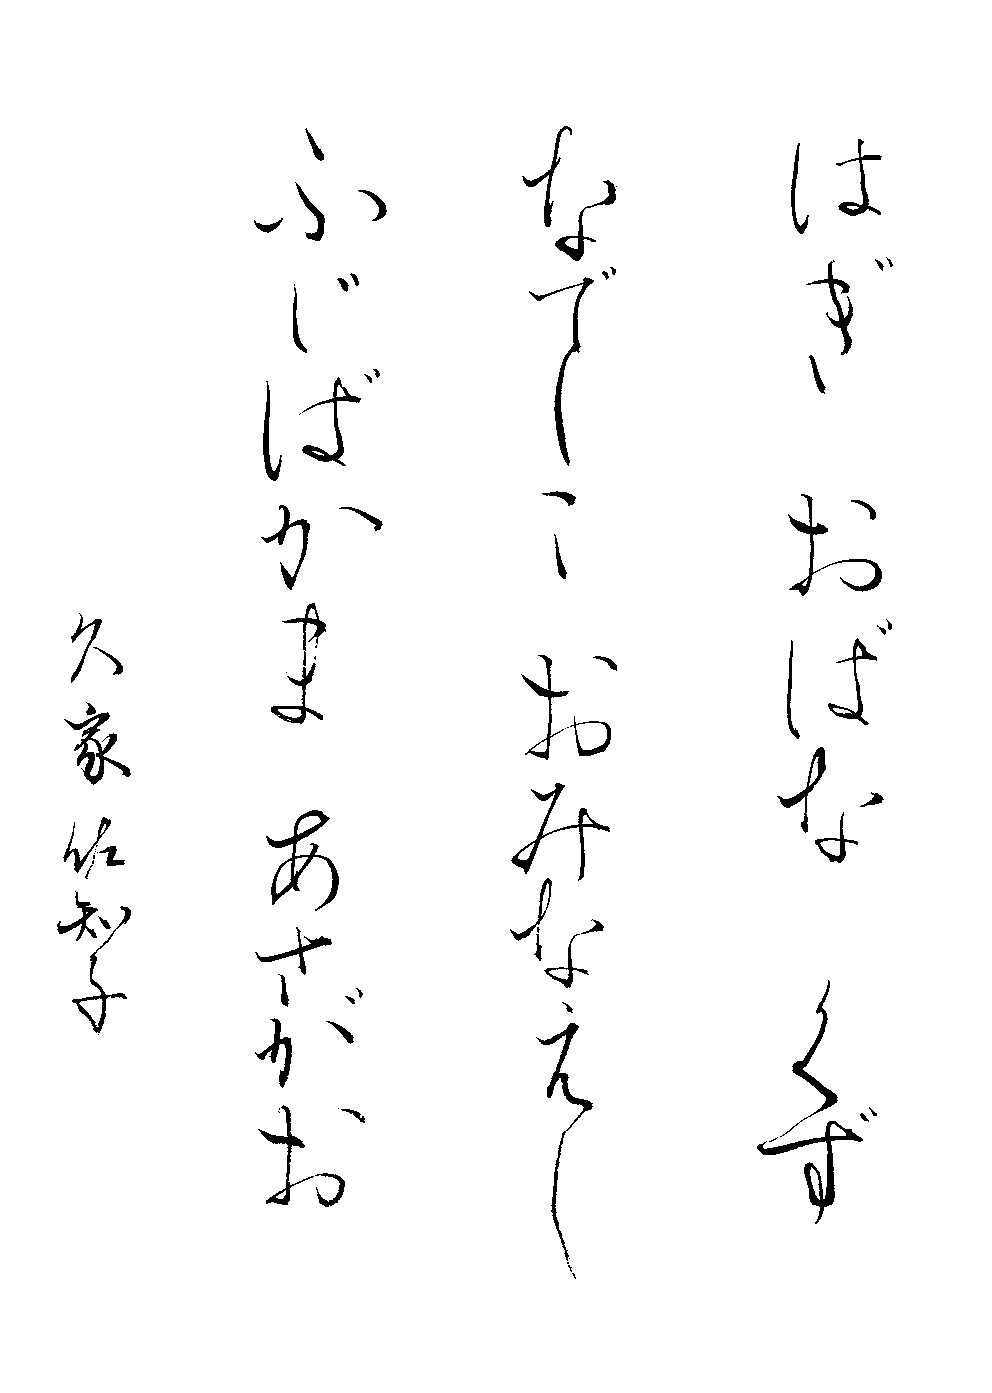 はぎ　おばな　くず
なでしこ　おみなえし
ふじばかま　あさがお
久家佐知子